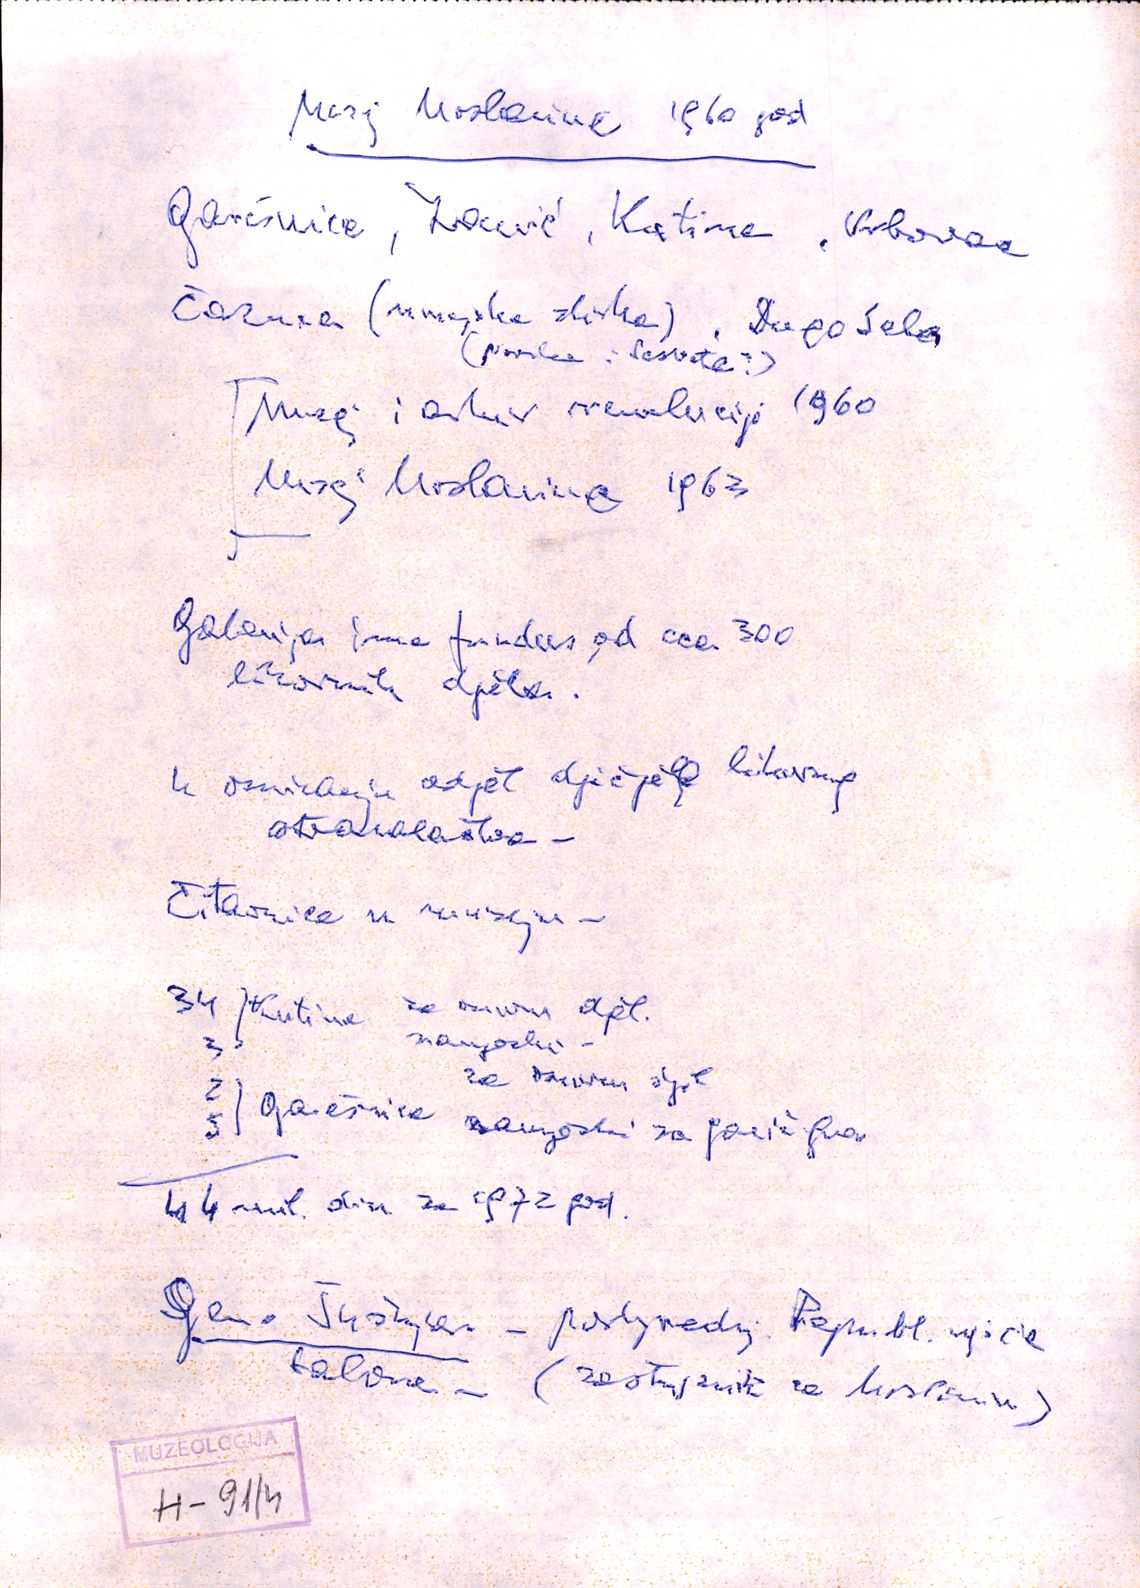 Muzej Moslavine 1960 god
Garešnica, Ivanić, Kutina, Vrbovec
Čazma (muzejska zbirka), Dugo Selo
Muzej i arhiv revolucije 1960
Muzej Moslavine 1963
Galerija ima fundus od cca 300
likovnih djela.
U osnivanju odjel dječjeg likovnog
stvaralaštva –
Čitaonica u muzeju –
34 Kutina za osnovnu djel.
3 namjenski –
2 za osnovnu djel
5 Garešnica namjenski za
44 mil. din za 1972 god.
– Republ. vijeća
Sabora – (zastupnik za Moslavinu)
MUZEOLOGIJA
H-91/4